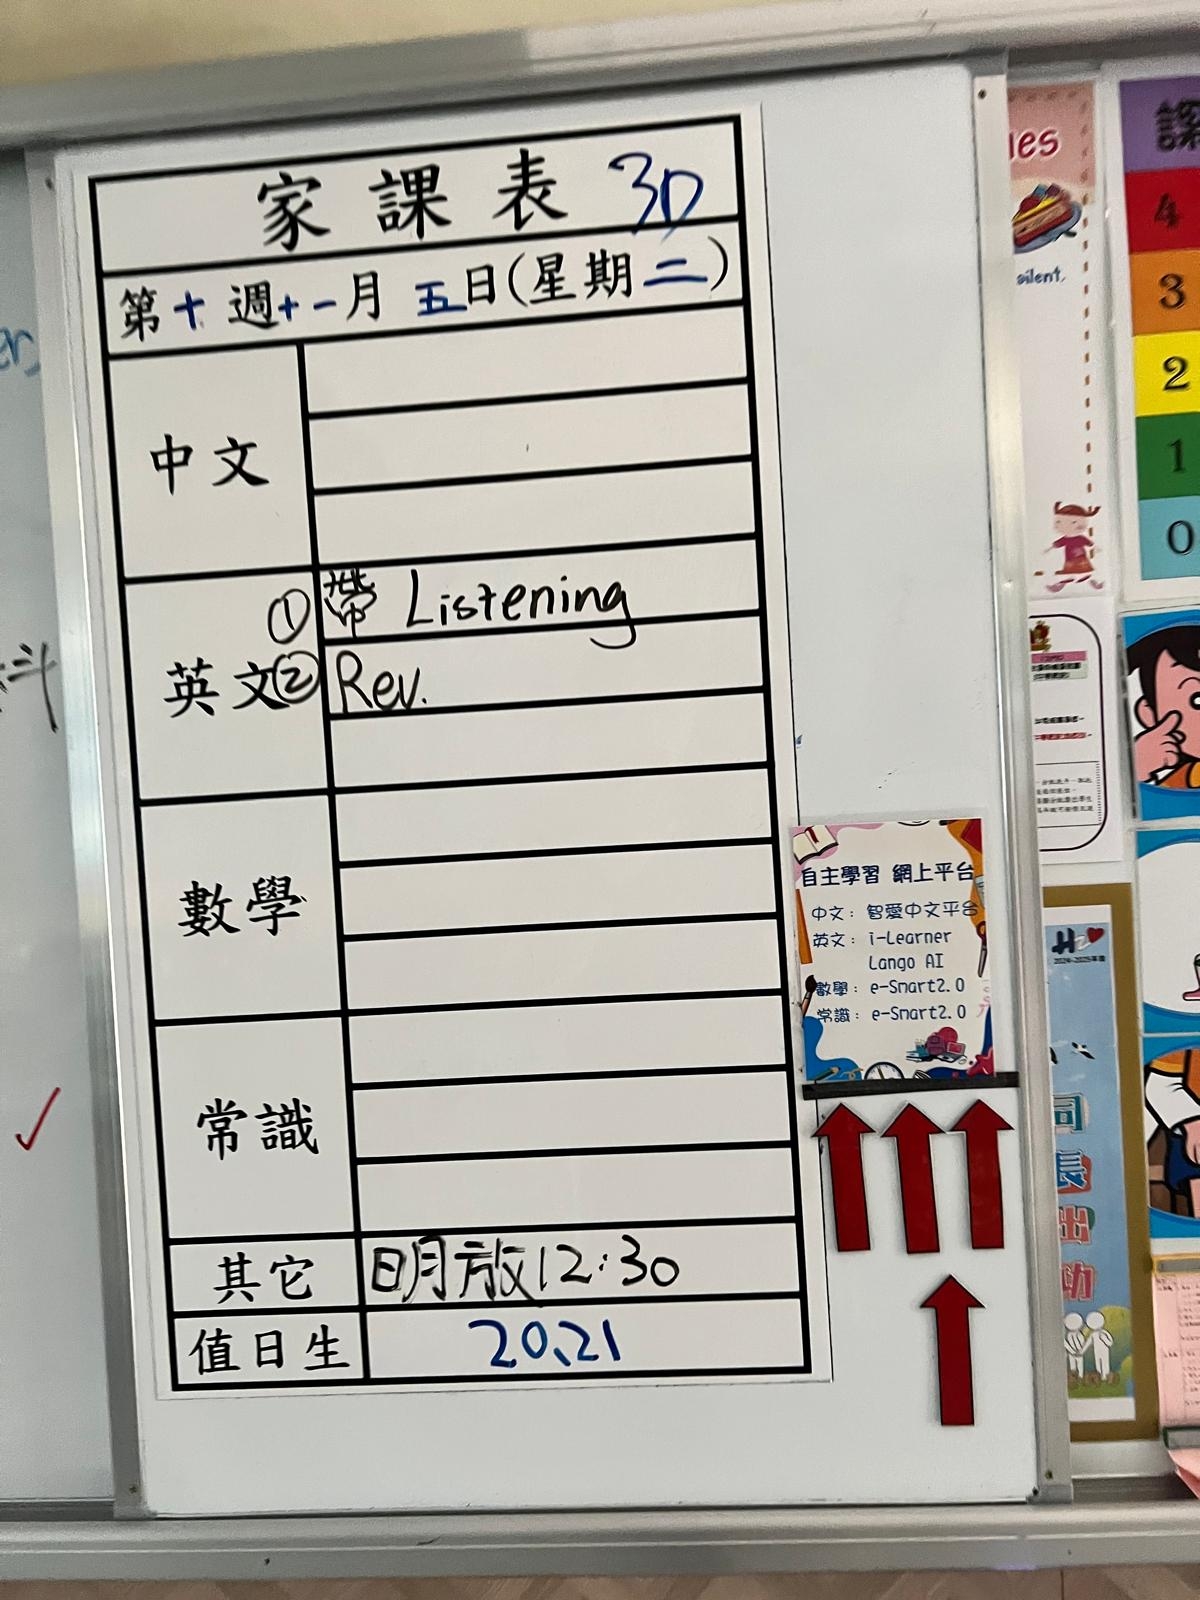 家課表 3D
第十週十一月五日(星期二)
中文
英文
① 帶 Listening
② Rev.
數學
常識
其它 明放12:30
值日生 20、21
自主學習 網上平台
中文： 智愛中文平台
英文： i-Learner
Lango AI
數學： e-Smart2.0
常識： e-Smart2.0
silent.
課
4
3
2
1
0
2024-2025年度
同
長
出
功